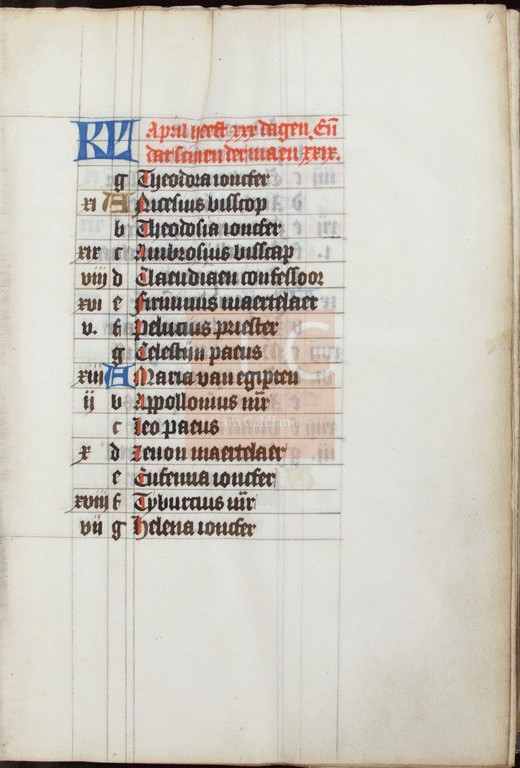 KL April heeft xxx dagen. En̄
dat scinen der maen xxix.
g Theodora ioncfer
xi A Nicesius bisscop
b Theodosia ioncfer
xix c Ambrosius bisscap
viij d Claeudiaen confessoor
xvi e Firminus maertelaer
v. f Pelucius priester
g Celestijn paeus
xiij A Maria van egipten
ij b Appollonius mr̄
c Leo paeus
x d Zenon maertelaer
e Eufemia ioncfer
xviij f Tyburcius mr̄
vij g Helena ioncfer